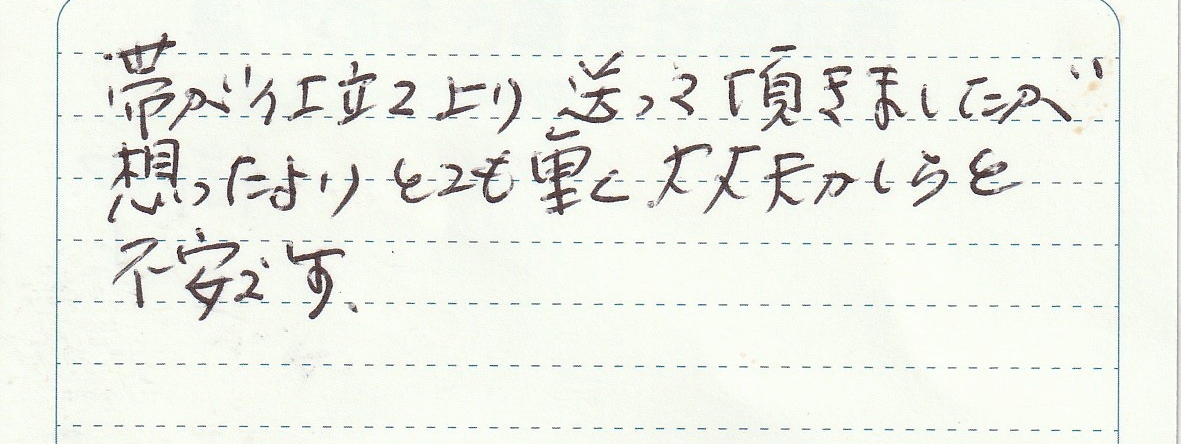 帯が仕立て上り送って頂きましたが
想ったよりとても重く大丈夫かしらと
不安です、